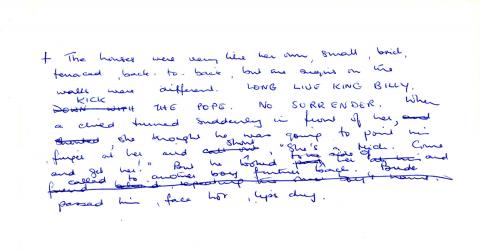 + The houses were very like her own, small, brick,
terraced, back-to-back, but the slogans on the
walls were different. LONG LIVE KING BILLY.
KICK
DOWN WITH THE POPE. NO SURRENDER. When
a child turned suddenly in front of her, and
shouted, she thought he was going to point his
finger at her and shout, "She's a Mick. Come
and get her!" But he looked past her and
called to another boy further back. Bride
passed him, face hot, lips dry.